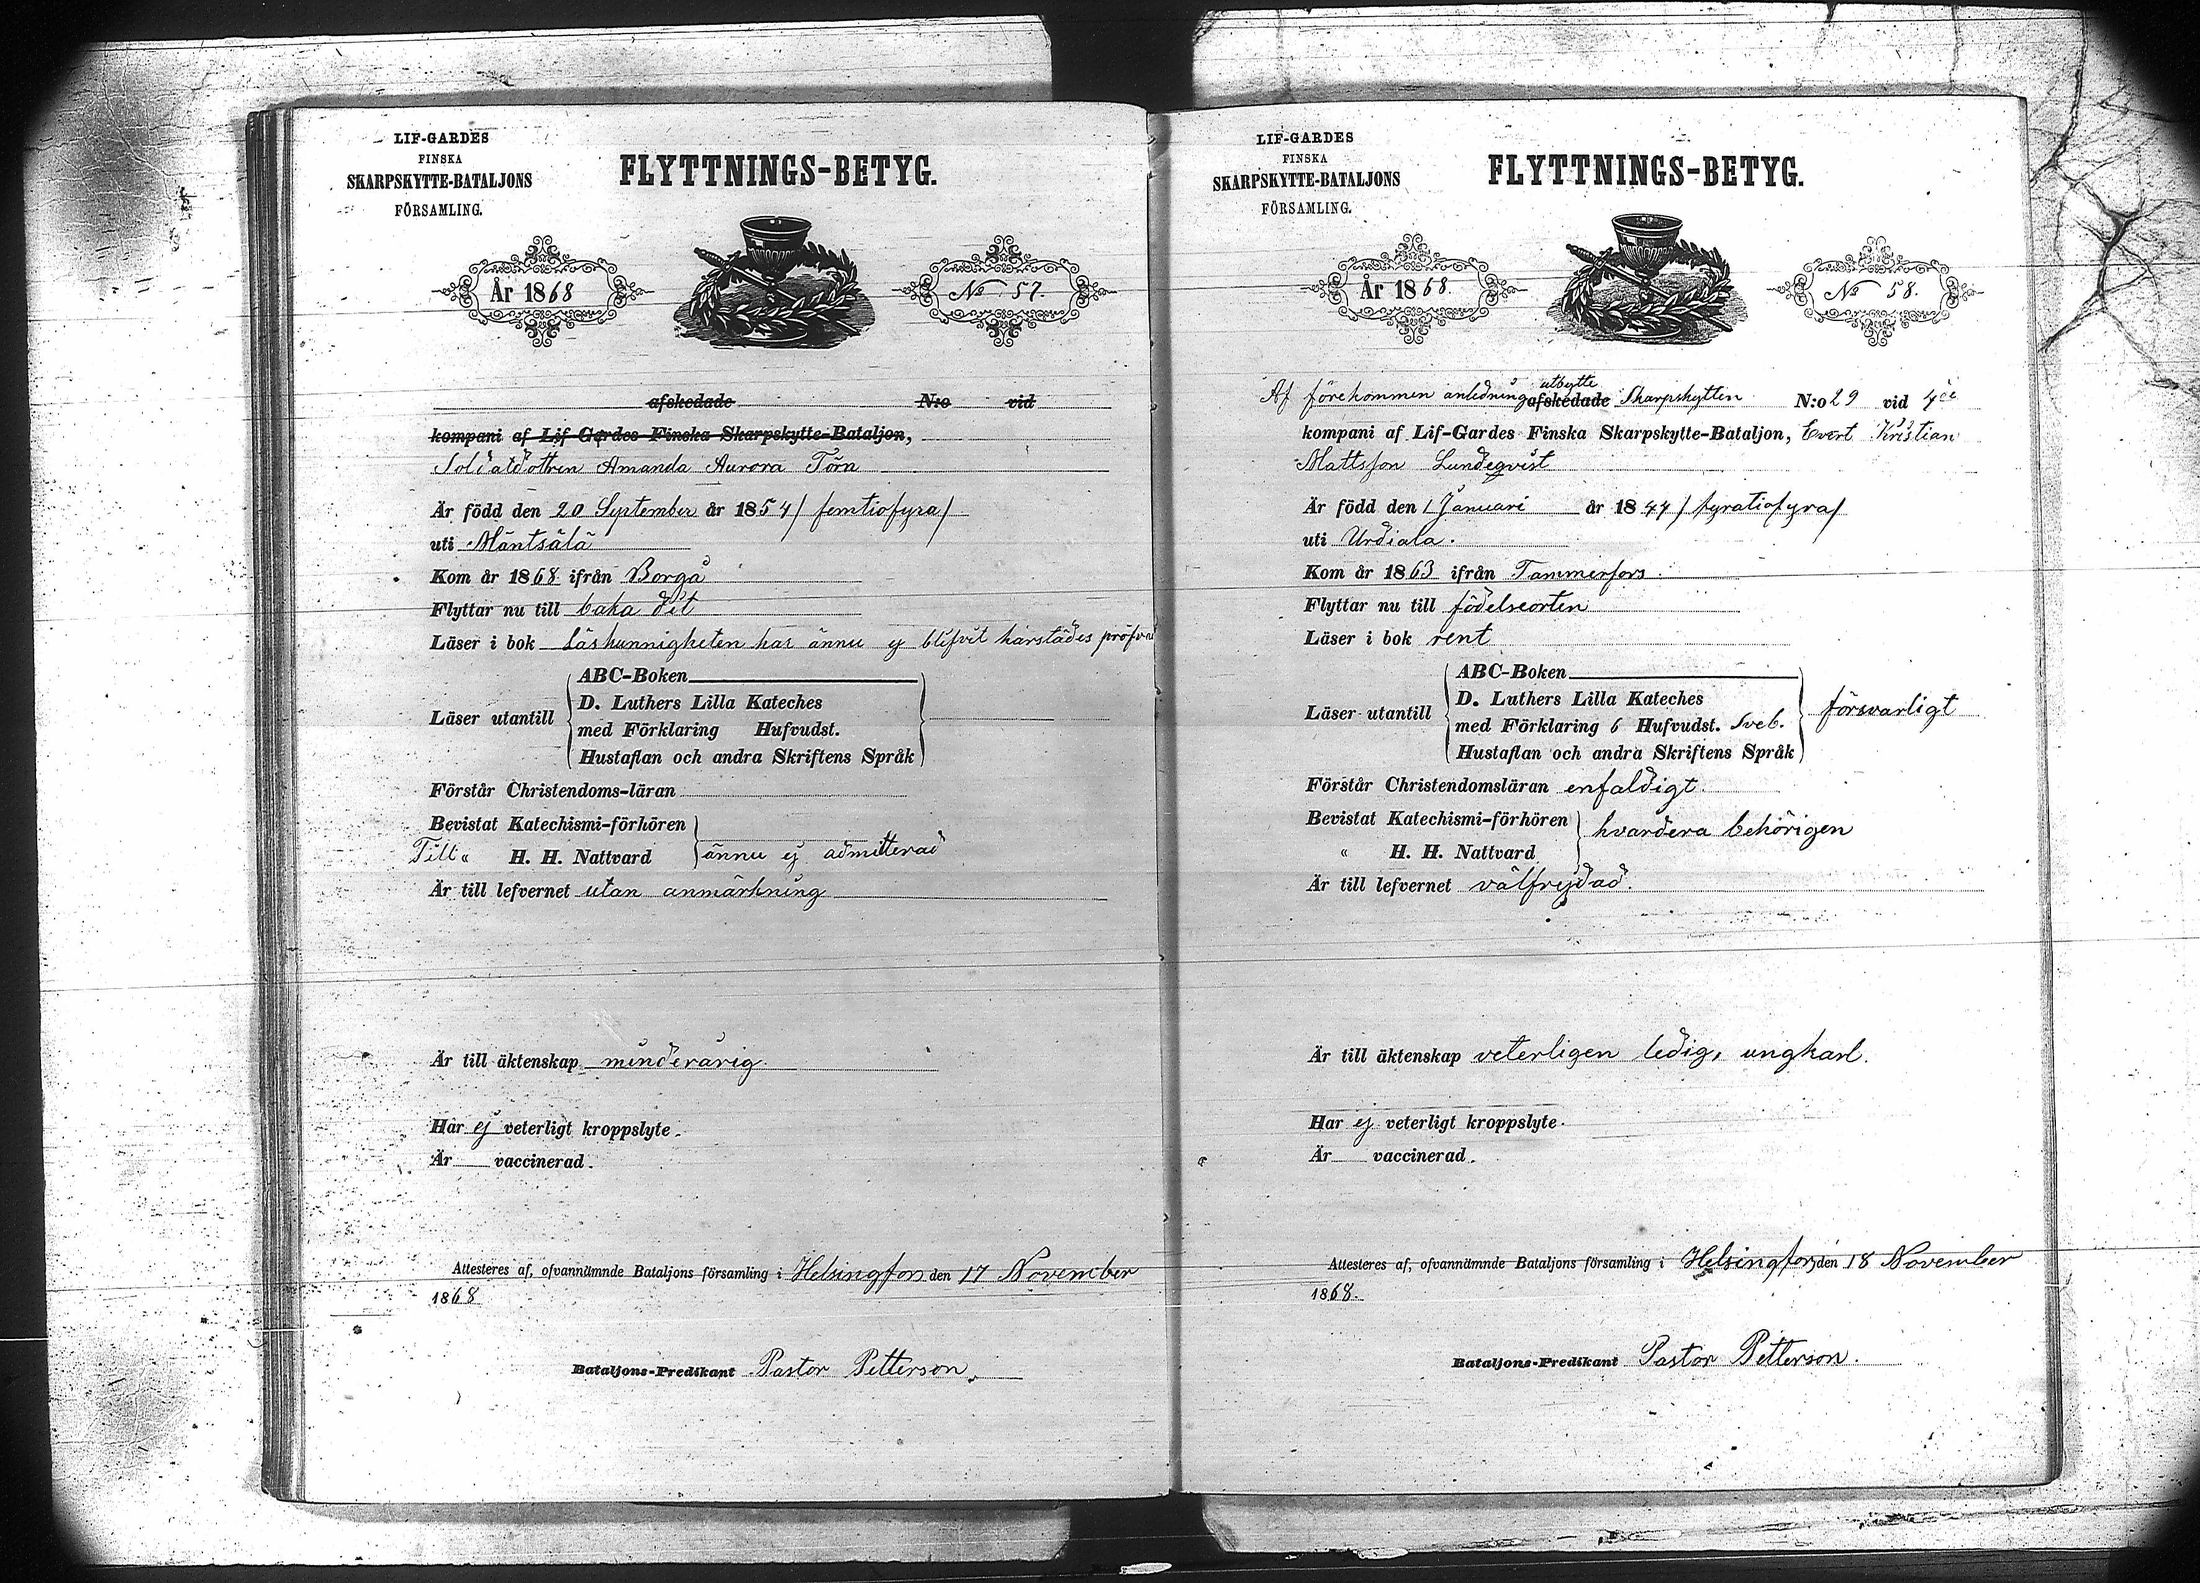 LIF-GARDES
FINSKA
SKARPSKYTTE-BATALJONS
FÖRSAMLING.
FLYTTNINGS-BETYG.
År 1868
No 57.
afskedade N:o vid
kompani af Lif-Gardes Finska Skarpskytte-Bataljon,
Soldatdottren Amanda Aurora Törn
Är född den 20 September år 1854 / femtiofyra /
uti Mäntsälä
Kom år 1868 ifrån Borgå
Flyttar nu till baka dit
Läser i bok Läskunnigheten har ännu ej blifvit härstädes pröfvad
Läser utantill
ABC-Boken
D. Luthers Lilla Kateches
med Förklaring Hufvudst.
Hustaflan och andra Skriftens Språk
Förstår Christendoms-läran
Bevistat Katechismi-förhören
Till « H. H. Nattvard ännu ej admitterad
Är till lefvernet utan anmärkning
Är till äktenskap minderårig.
Har ej veterligt kroppslyte.
Är vaccinerad.
Attesteres af, ofvannämnde Bataljons församling i Helsingfors den 17 November
1868
Bataljons-Predikant Pastor Petterson.
LIF-GARDES
FINSKA
SKARPSKYTTE-BATALJONS
FÖRSAMLING.
FLYTTNINGS-BETYG.
År 1868.
No 58.
utbytte
Af förekommen anledning afskedade Skarpskytten N:o 29 vid 4de
kompani af Lif-Gardes Finska Skarpskytte-Bataljon, Evert Kristian
Mattsson Lundeqvist
Är född den 1 Januari år 1844 / fyratiofyra /
uti Urdiala.
Kom år 1863 ifrån Tammerfors.
Flyttar nu till födelseorten
Läser i bok rent
Läser utantill
ABC-Boken
D. Luthers Lilla Kateches
med Förklaring 6 Hufvudst. Sveb. försvarligt
Hustaflan och andra Skriftens Språk
Förstår Christendomsläran enfaldigt.
Bevistat Katechismi-förhören hvardera behörigen
« H. H. Nattvard
Är till lefvernet välfrejdad.
Är till äktenskap veterligen ledig, ungkarl.
Har ej veterligt kroppslyte.
Är vaccinerad.
Attesteres af, ofvannämnde Bataljons församling i Helsingfors den 18 November
1868.
Bataljons-Predikant Pastor Petterson.